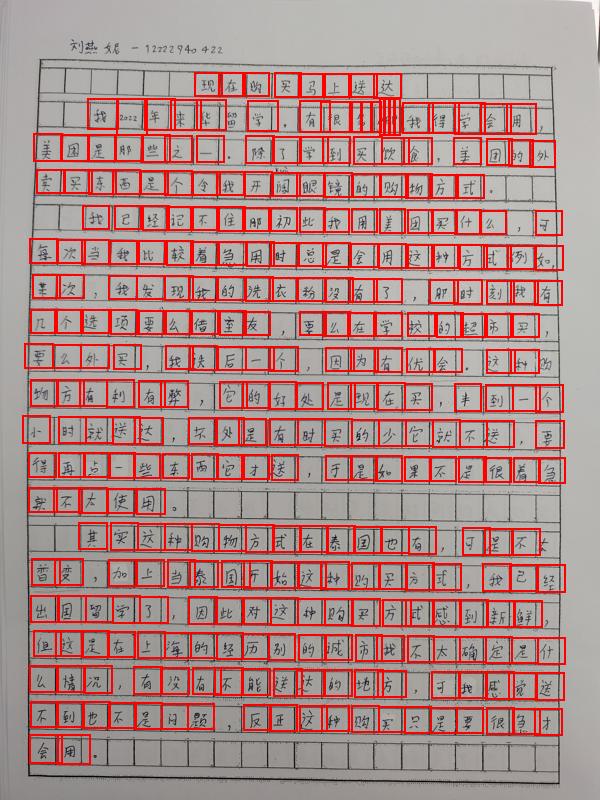 刘燕妮 - 12222940422
现在的买马上送达
我2022年来华留学。有很多 我得学会用，
美团是那些之一。除了学到买饮食，美团的外
卖买东西是个令我开阔眼镜的购物方式。
我已经记不住那初些我用美团买什么，可
每次当我比较着急用时总是会用这种方式例如，
某次，我发现我的洗衣粉没有了，那时刻我有
几个选项要么借室友，要么在学校的超市买，
要么外买，我选后一个，因为有优会。这种购
物方有利有弊，它的好处是现在买，半到一个
小时就送达，坏处是有时买的少它就不送，要
得再点一些东西它才送，于是如果不是很着急
就不太使用。
其买这种购物方式在泰国也有，可是不太
普变，加上当泰国开始这种购买方式，我已经
出国留学了，因此对这种购买方式感到新鲜，
但这是在上海的经历别的城市我不太确定是什
么情况，有没有不能送达的地方，可我感觉送
不到也不是问题，反正这种购买只是要很急才
会用。